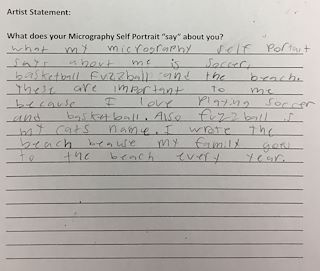 Artist Statement:
What does your Micrography Self Portrait "say" about you?
what my micrography self Portrait
says about me is soccer,
basketball fuzzball and the beach.
these are important to me
because I love Playing soccer
and basketball. Also fuzzball is
my cats name. I wrote the
beach beause my family goes
to the beach every year.